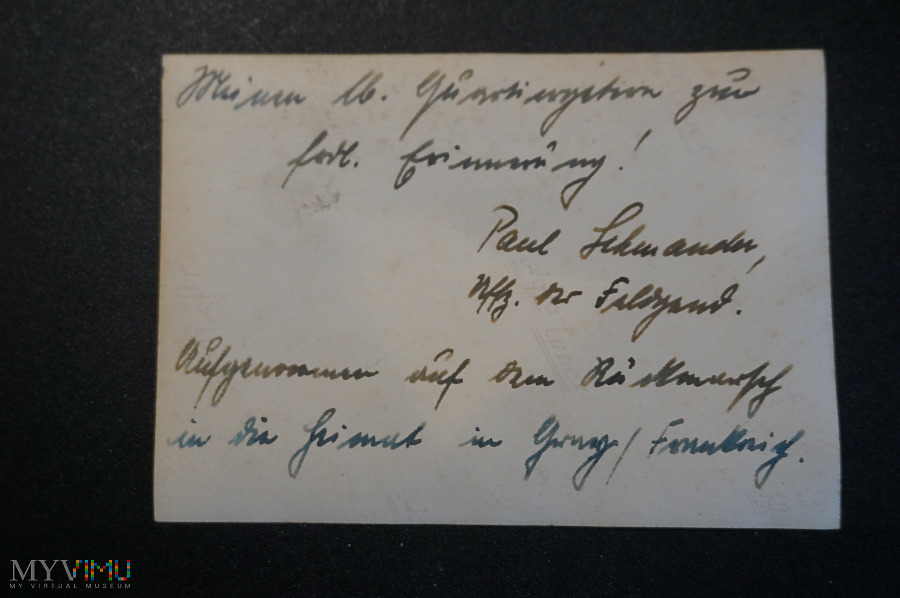 Meinen lb. Quartiergebern zur
frdl. Erinnerung!
Paul Schmander,
Uffz. der Feldgend.
Aufgenommen auf dem Rückmarsch
in die Heimat in Gray/Frankreich.
MYVIMU
MY VIRTUAL MUSEUM